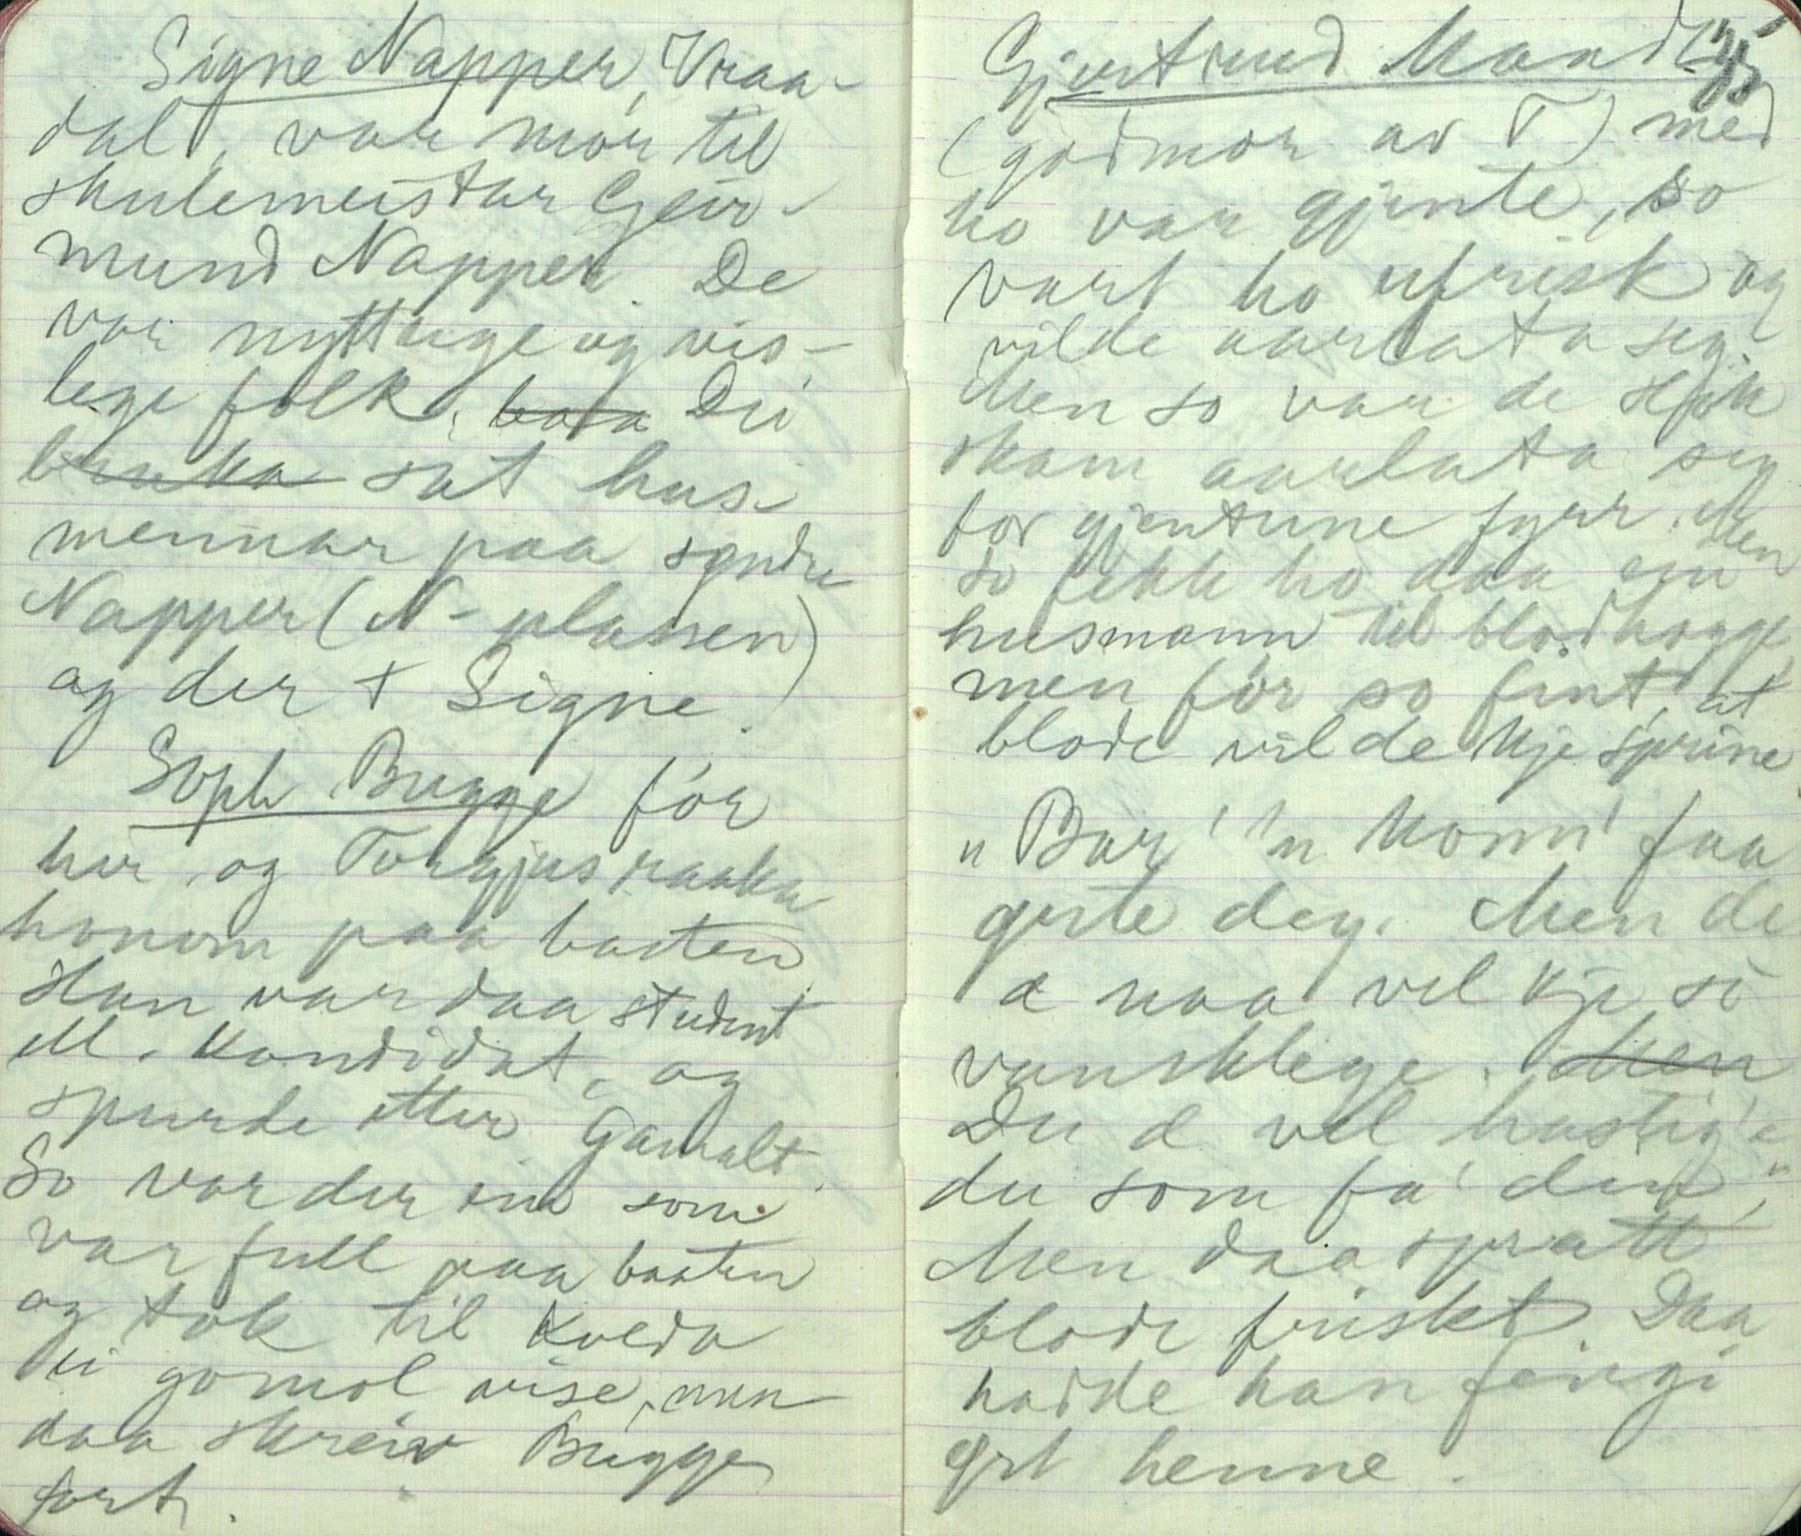 Signe Napper, Vraa-
dal, var mor til
skulemeistar Geir-
mund Napper. De
var nyttuge og vis-
lege folk. bota Dei
bruka sat hus-
mennar paa syndre
Napper (N-plassen)
og der † Signe.
Soph Bugge fór
her og Torgjus raaka
honom paa baaten
Han var daa student
ell. Kandidat, og
spurde etter gamalt.
So var der ein som
var full paa baaten
og tok til kveda
ei gomol vise, men
daa skreiv Bugge
fort.
Gjertrud
(godmor av T) med
ho var gjente, so
vart ho ufrisk og
vilde aarlata seg.
Men so var de slik
skam aarlata seg
for gjentune fyrr. Men
so fekk ho daa ein
husmann til blodhogge,
men fór so fint, at
blode vilde kje sprine
"Bar' 'n konn' faa
gjste deg. Men de
æ naa vel kje so
vansklege. Men
Du æ vel hastig'e
du som fa' din",
Men daa spratt
blode friskt. Daa
hadde han fengi
gst henne.